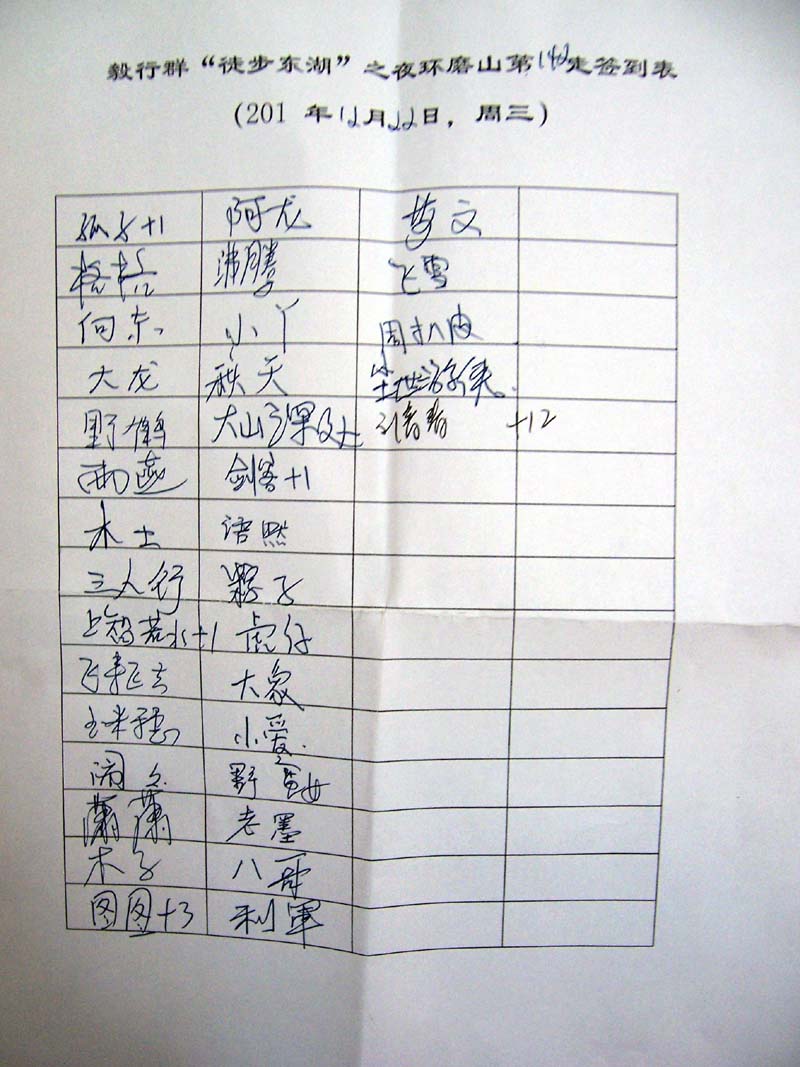 毅行群“徒步东湖”之夜环磨山第142走签到表
(201 年12月22日，周三)
+1 阿龙 梦文
格格 沸腾 飞雪
向东 小丫 周扒皮
大龙 秋天 游侠
野鹤 大山深处 +12
雨燕 剑客+1
木土 语然
三人行 粿子
上智若水+1 虎仔
飞来飞去 大象
玉米穗 小爱
闹久 野蛮女
潇潇 老墨
木子 八哥
图图+3 利軍